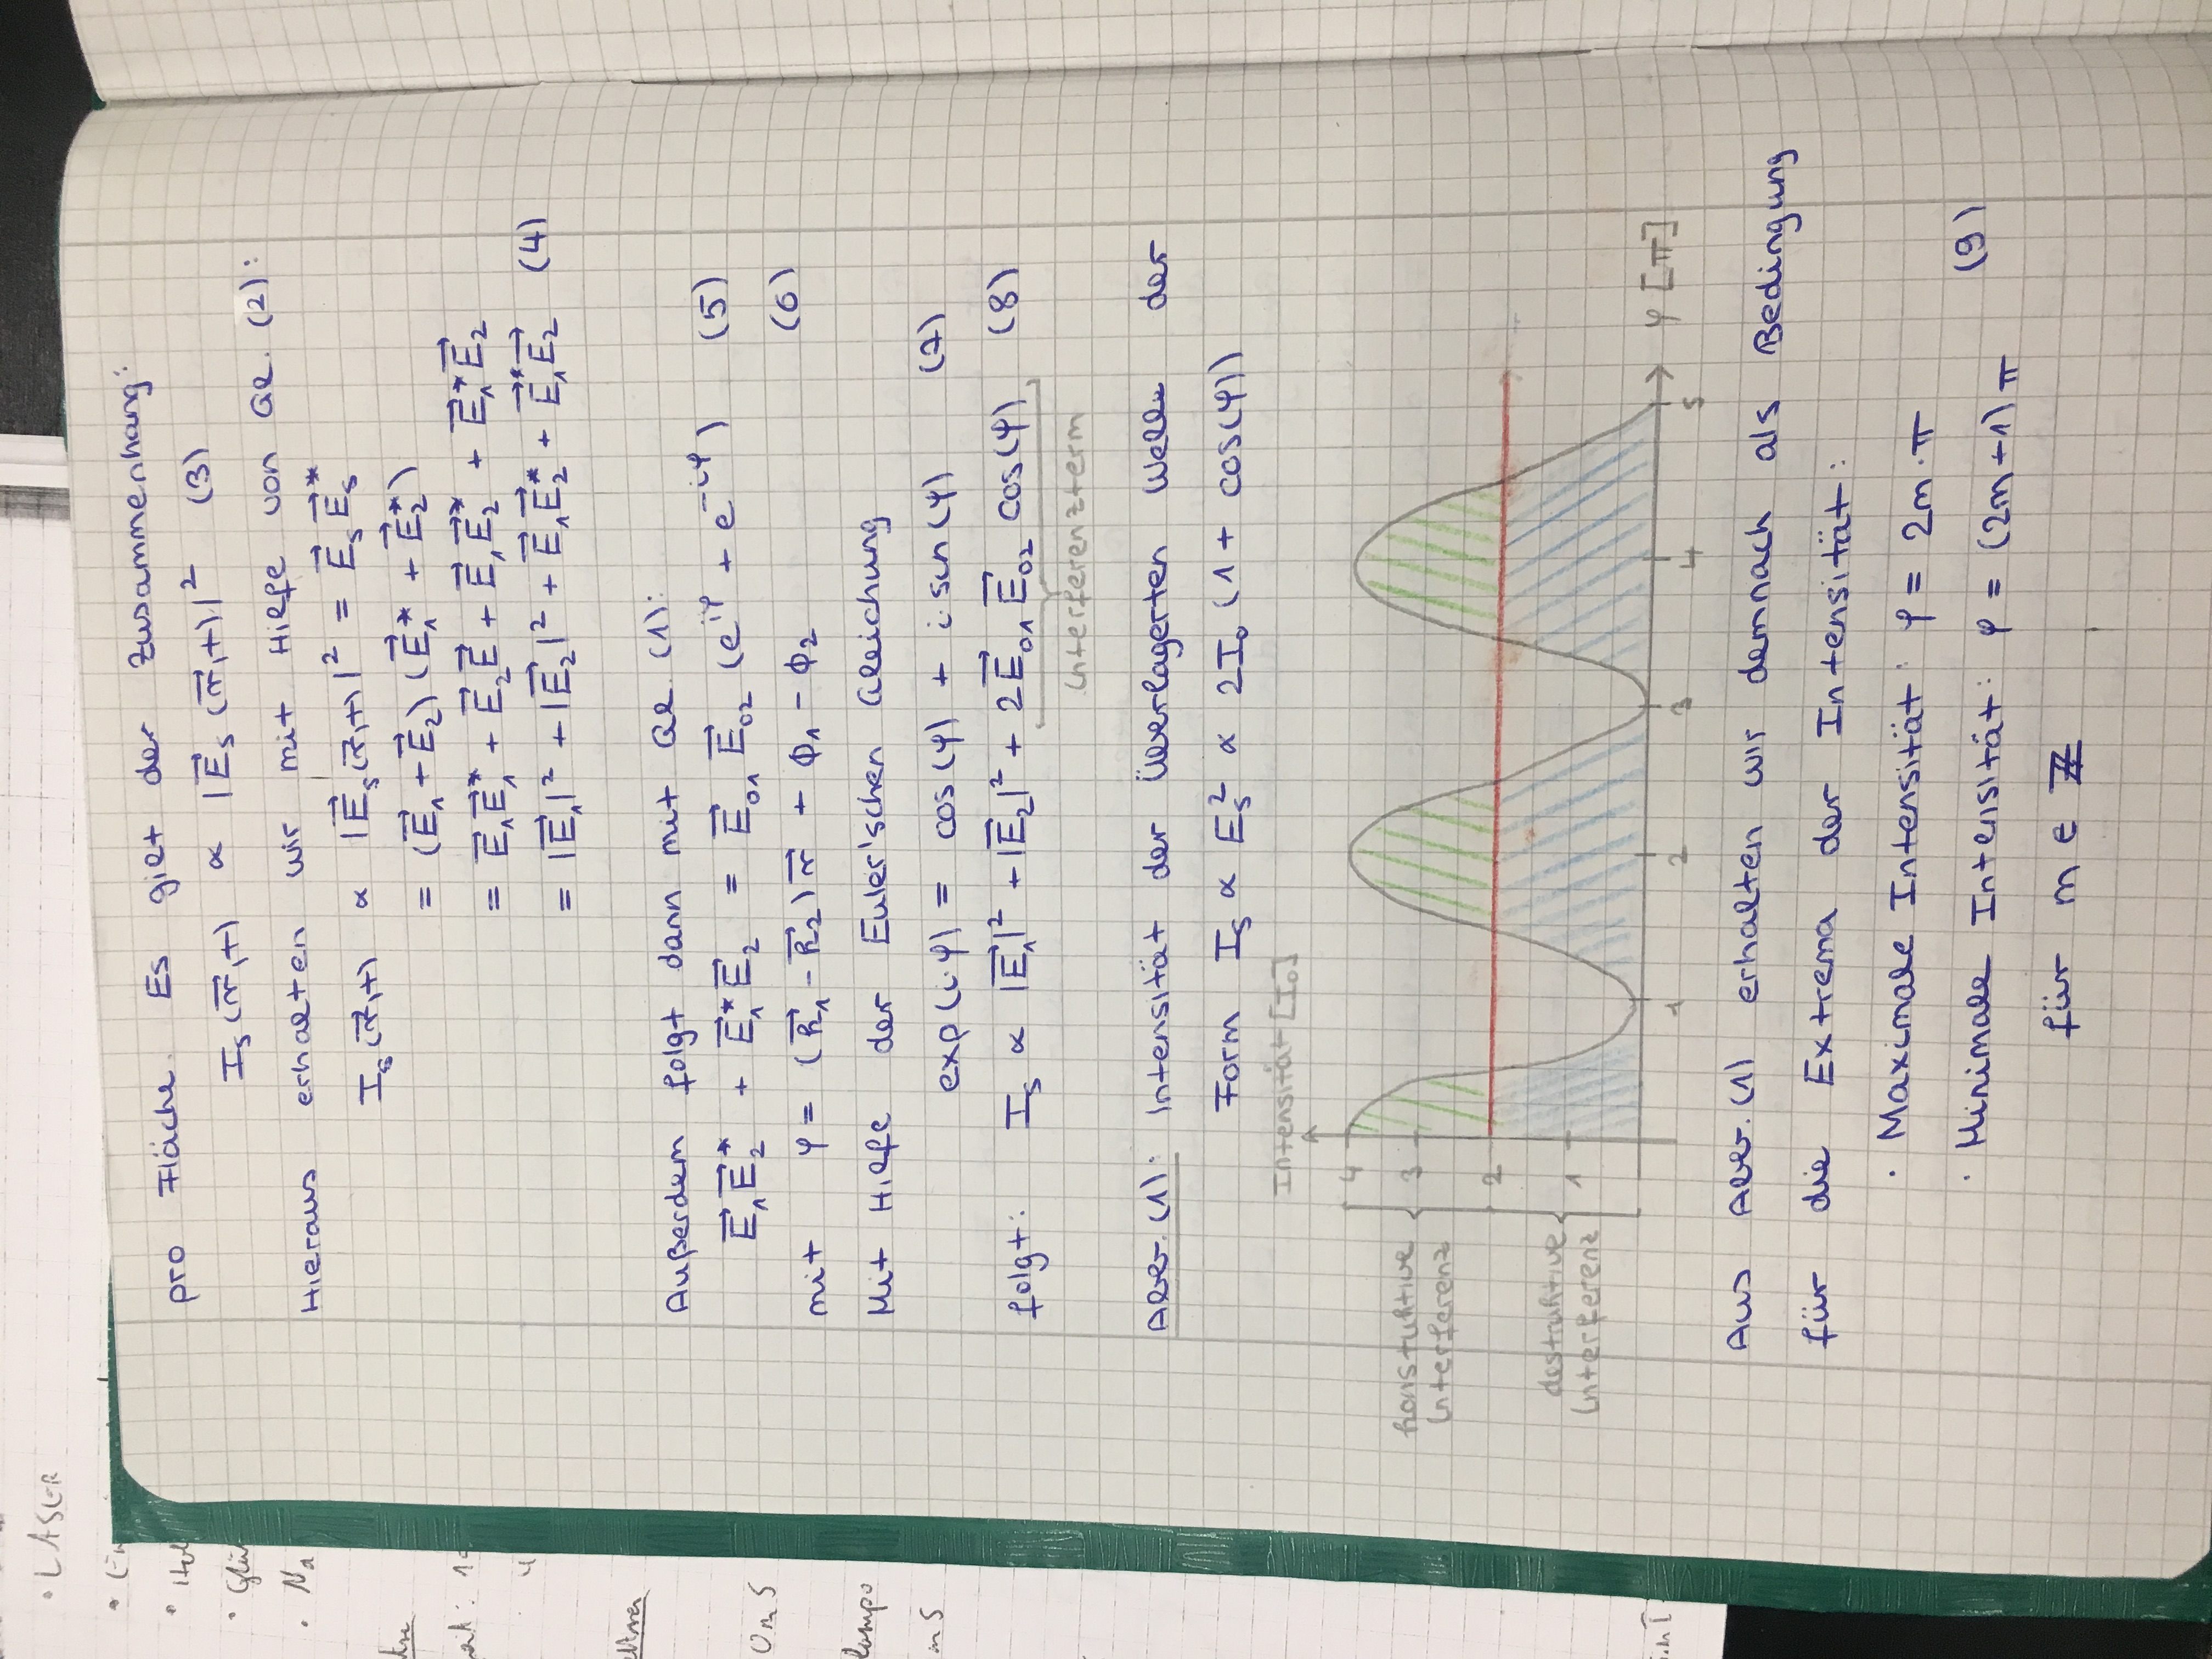 • LASER
• Na
Om S
lampe
in S
pro Fläche. Es gilt der Zusammenhang:
I_S(r⃗,t) ∝ |E⃗_S(r⃗,t)|² (3)
Hieraus erhalten wir mit Hilfe von Gl. (2):
I_S(r⃗,t) ∝ |E⃗_S(r⃗,t)|² = E⃗_S E⃗_S*
= (E⃗_1 + E⃗_2)(E⃗_1* + E⃗_2*)
= E⃗_1E⃗_1* + E⃗_2E⃗ + E⃗_1E⃗_2* + E⃗_1*E⃗_2
= |E⃗_1|² + |E⃗_2|² + E⃗_1E⃗_2* + E⃗_1*E⃗_2 (4)
Außerdem folgt dann mit Gl. (1):
E⃗_1E⃗_2* + E⃗_1*E⃗_2 = E⃗_01 E⃗_02 (e^{iφ} + e^{-iφ}) (5)
mit φ = (k⃗_1 - k⃗_2)r⃗ + ϕ_1 - ϕ_2 (6)
Mit Hilfe der Euler'schen Gleichung
exp(i·φ) = cos(φ) + i·sin(φ) (7)
folgt: I_S ∝ |E⃗_1|² + |E⃗_2|² + 2E⃗_01 E⃗_02 cos(φ) (8)
Interferenzterm
Abb. (1): Intensität der Überlagerten Welle der
Form I_S ∝ E_S² ∝ 2I_0 (1 + cos(φ))
Intensität [I_0]
4
konstuktive 3
Interferenz
2
destruktive
Interferenz 1
1 2 3 4 5 φ [π]
Aus Abb. (1) erhalten wir demnach als Bedingung
für die Extrema der Intensität:
· Maximale Intensität: φ = 2m·π
· Minimale Intensität: φ = (2m+1)π (9)
für m ∈ ℤ